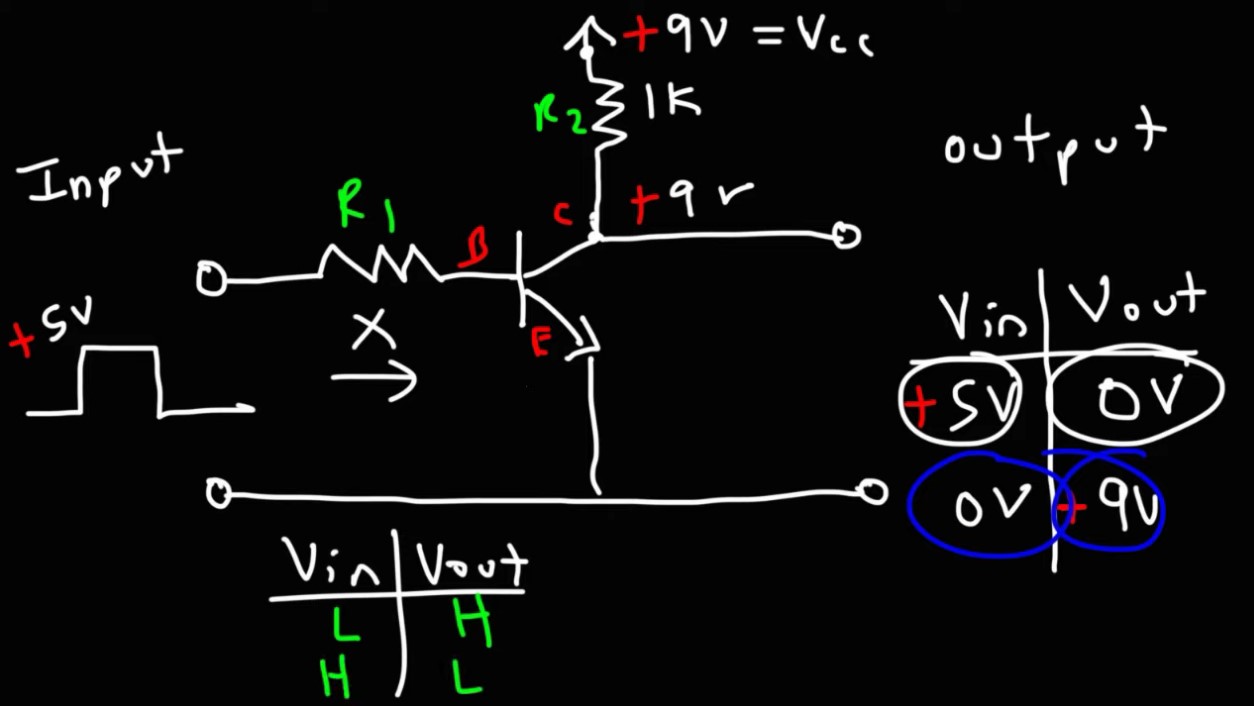 +9V = Vcc
R2 1K
Input
output
R1
B
C
+9v
+5V
X
E
Vin Vout
+5V 0V
0V +9V
Vin Vout
L H
H L